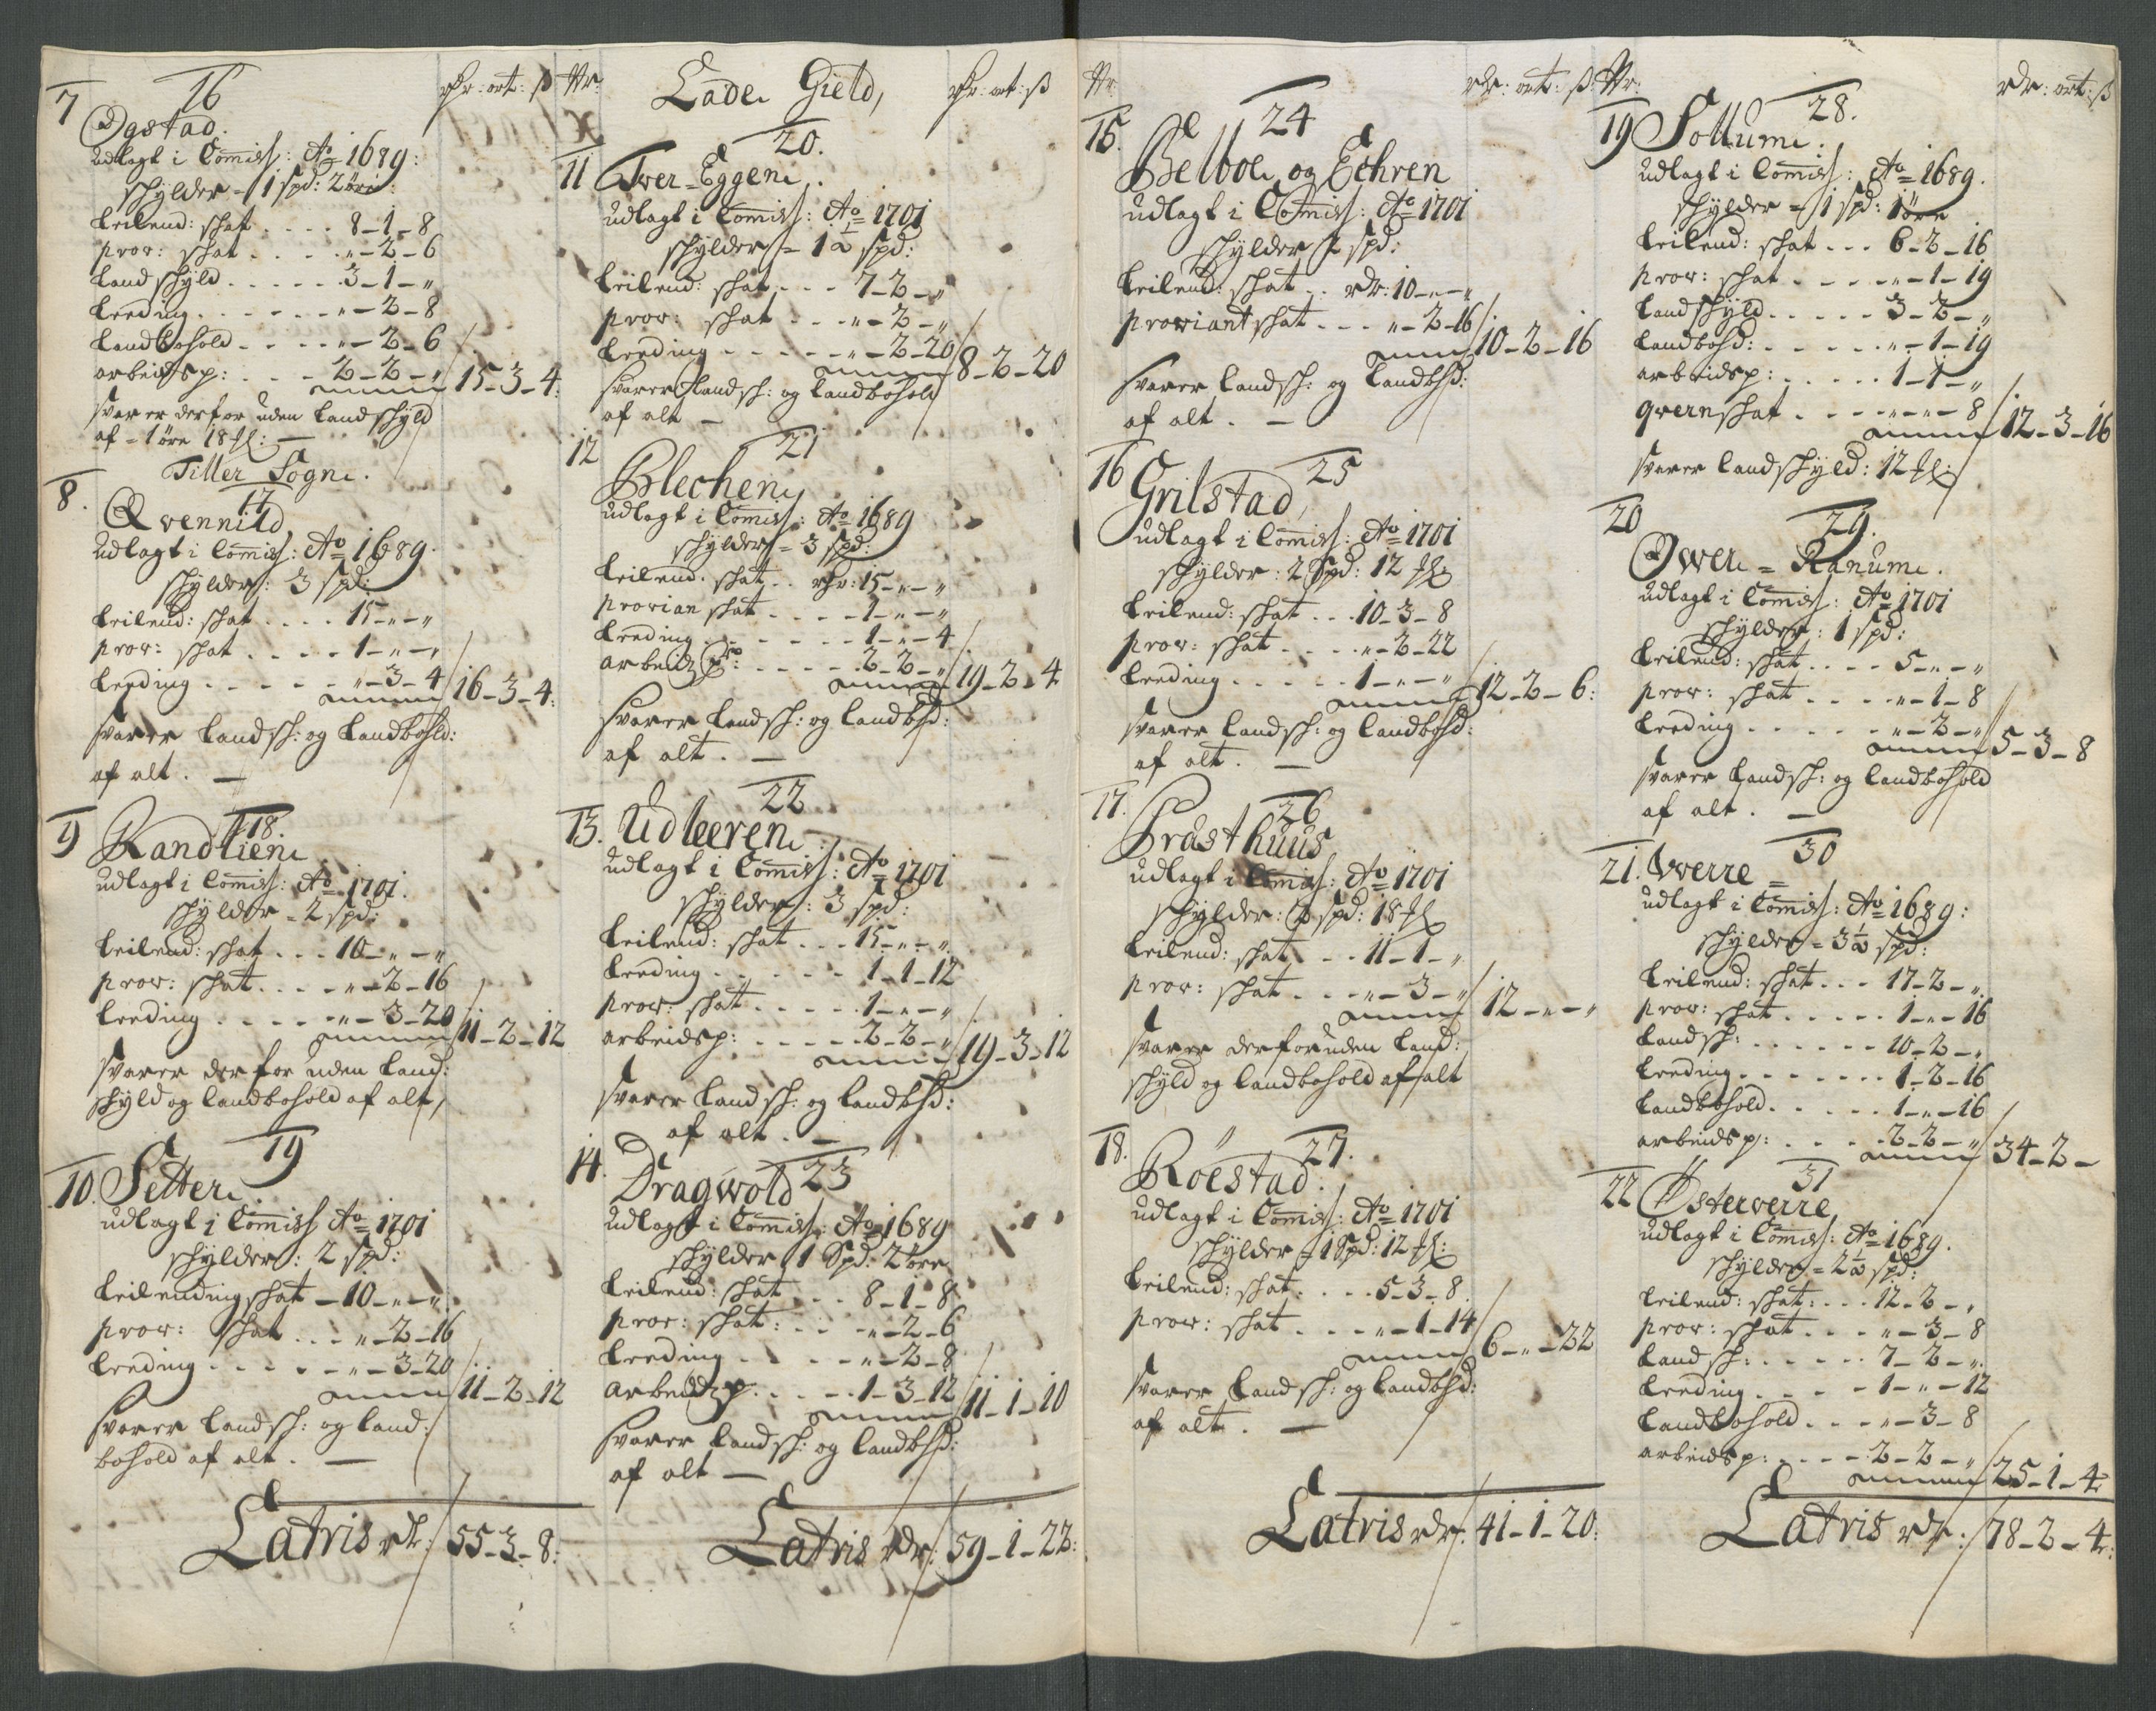 Rdr: ort: ß
7 16
Ogstad.
udlagt i Comiss: Ao 1689:
schylder = 1 spd: 2 öre:
Leilend: schat . . . . 8-1-8
prov: schat . . . . . „-2-6
Landschyld . . . . . 3-1-„
Leeding . . . . . . „-2-8
Landbohold . . . . „-2-6
arbeidsp: . . . 2-2-„ 15-3-4:
svarer derfor uden Landschyld
af - 1 öre 18 Ml: —
Tiller Sogn.
8. 17
Qvennild
udlagt i Comiss: Ao 1689.
schylder: 3 spd:
Leilend: schat . . . . 15-„-„
prov: schat . . . . 1-„-„
Leeding . . . . . „-3-4 16-3-4:
svarer Landsch: og Landbohld:
af alt. —
9 18.
Randlien
udlagt i Comiss: Ao 1701.
schylder = 2 spd:
Leilend: schat . . . 10-„-„
prov: schat . . . . „-2-16
Leeding . . . . . „-3-20 11-2-12
svarer derfor uden Land:
schyld og Landbohold af alt,
19
10. Setter
udlagt i Comiss Ao 1701
schylder: 2 spd:
Leilendingschat - 10-„-„
prov: schat . . . „-2-16
Leeding . . . . . „-3-20 11-2-12
svarer Landsch: og Land:
bohold af alt. —
Latris rdr: 55-3-8:
Nr: Lade Gield, Rdr: ort: ß
20.
11 Tver-Eggen.
udlagt i Comiss: Ao 1701
schylder = 1 1/2 spd:
Leilend: schat . . . 7-2-„
prov: schat . . . „-2-„
Leeding . . . . . „-2-20 8-2-20
svarer Landsch: og Landbohold
af alt —
12 21
Blechen
udlagt i Comiss: Ao 1689
schylder = 3 spd:
Leilend: schat . . rdr: 15-„-„
provianschat . . . . 1-„-„
Leeding . . . . . . 1-„-4
. . . . . 2-2-„ 19-2-4
svarer Landsch: og Landbhd:
af alt. —
22
13. Udleeren
udlagt i Comiss: Ao 1701
schylder: 3 spd:
Leilend: schat . . . 15-„-„
Leeding . . . . . 1-1-12
prov: schat . . . . . 1-„-„
arbeidsp: . . . . . 2-2-„ 19-3-12
svarer Landsch: og Landbhd:
af alt. —
14. Dragwold 23
udlagt i Comiss: Ao 1689
schylder 1 Spd: 2 öre
Leilend: schat . . . 8-1-8
prov: schat: . . . „-2-6
Leeding . . . . „-2-8
arbeidzp. . . . . 1-3-12 11-1-10
svarer Landsch: og Landbhd:
af alt —
Latris rdr: 59-1-22:
Nr: rdr: ort: ß:
15. 24
Belboe og Echren
udlagt i Comiss: Ao 1701
schylder 2 spd:
Leilend: schat . . rdr: 10-„-„
proviantschat . . . „-2-16 10-2-16
svarer Landsch: og Landbhd:
af alt. —
16 25
Grilstad,
udlagt i Comiss: Ao 1701
schylder: 2 Spd: 12 Ml:
Leilend: schat . . . 10-3-8
prov: schat . . . . „-2-22
Leeding . . . . . 1-„-„ 12-2-6:
svarer Landsch: og Landbohd:
af alt. —
17. 26
Prästhuus
udlagt i Comiss: Ao 1701
schylder: 2 spd: 18 Ml
Leilend: schat . . . 11-1-„
prov: schat . . . „-3-„ 12-„-„
svarer derforuden Land:
schyld og Landbohold af alt
18. 27.
Röestad.
udlagt i Comiss: Ao 1701
schylder = 1 Spd: 12 Ml:
Leilend: schat . . . . 5-3-8
prov: schat . . . . „-1-14 6-„-22
svarer Landsch: og Landbhd:
af alt. —
Latris rdr: 41-1-20:
Nr: rdr: ort: ß
28.
19 Sollum.
udlagt i Comiss: Ao 1689.
schylder = 1 spd: 1 öre
Leilend: schat . . . 6-2-16
prov: schat . . . . „-1-19
Landschyld . . . . . 3-2-„
Landbohd: . . . . . „-1-19
arbeidsp: . . . . . 1-1-„
qvernschat . . . . „-„-8 12-3-16
svarer Landschyld: 12 Ml:
20 29.
Ower = Ranum.
udlagt i Comiss: Ao 1701
schylder: 1 spd:
Leilend: schat . . . . 5-„-„
prov: schat . . . . „-1-8
Leeding . . . . . . „-2-„ 5-3-8
svarer Landsch: og Landbohold
af alt. —
21. Werre = 30
udlagt i Comiss: Ao 1689:
schylder = 3 1/2 spd:
Leilend: schat . . . 17-2-„
prov: schat . . . . . 1-„-16
Landsch: . . . . . . 10-2-„
Leeding . . . . . . . 1-2-16
Landbohold. . . . . . 1-„-16
arbeidsp: . . . . 2-2-„ 34-2-
31
22 Österwerre
udlagt i Comiss: Ao 1689.
schylder = 2 1/2 spd:
Leilend: schat: . . . 12-2-„
prov: schat . . . „-3-8
Landsch: . . . . . 7-2-„
Leeding . . . . . 1-„-12
Landbohold . . . . „-3-8
arbeidsp: . . . . 2-2-„ 25-1-4
Latris rdr: 78-2-4: